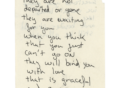 They are not
departed or gone
they are waiting
for you
when you think
that you just
can't go on
they will bind you
with love
that is graceful